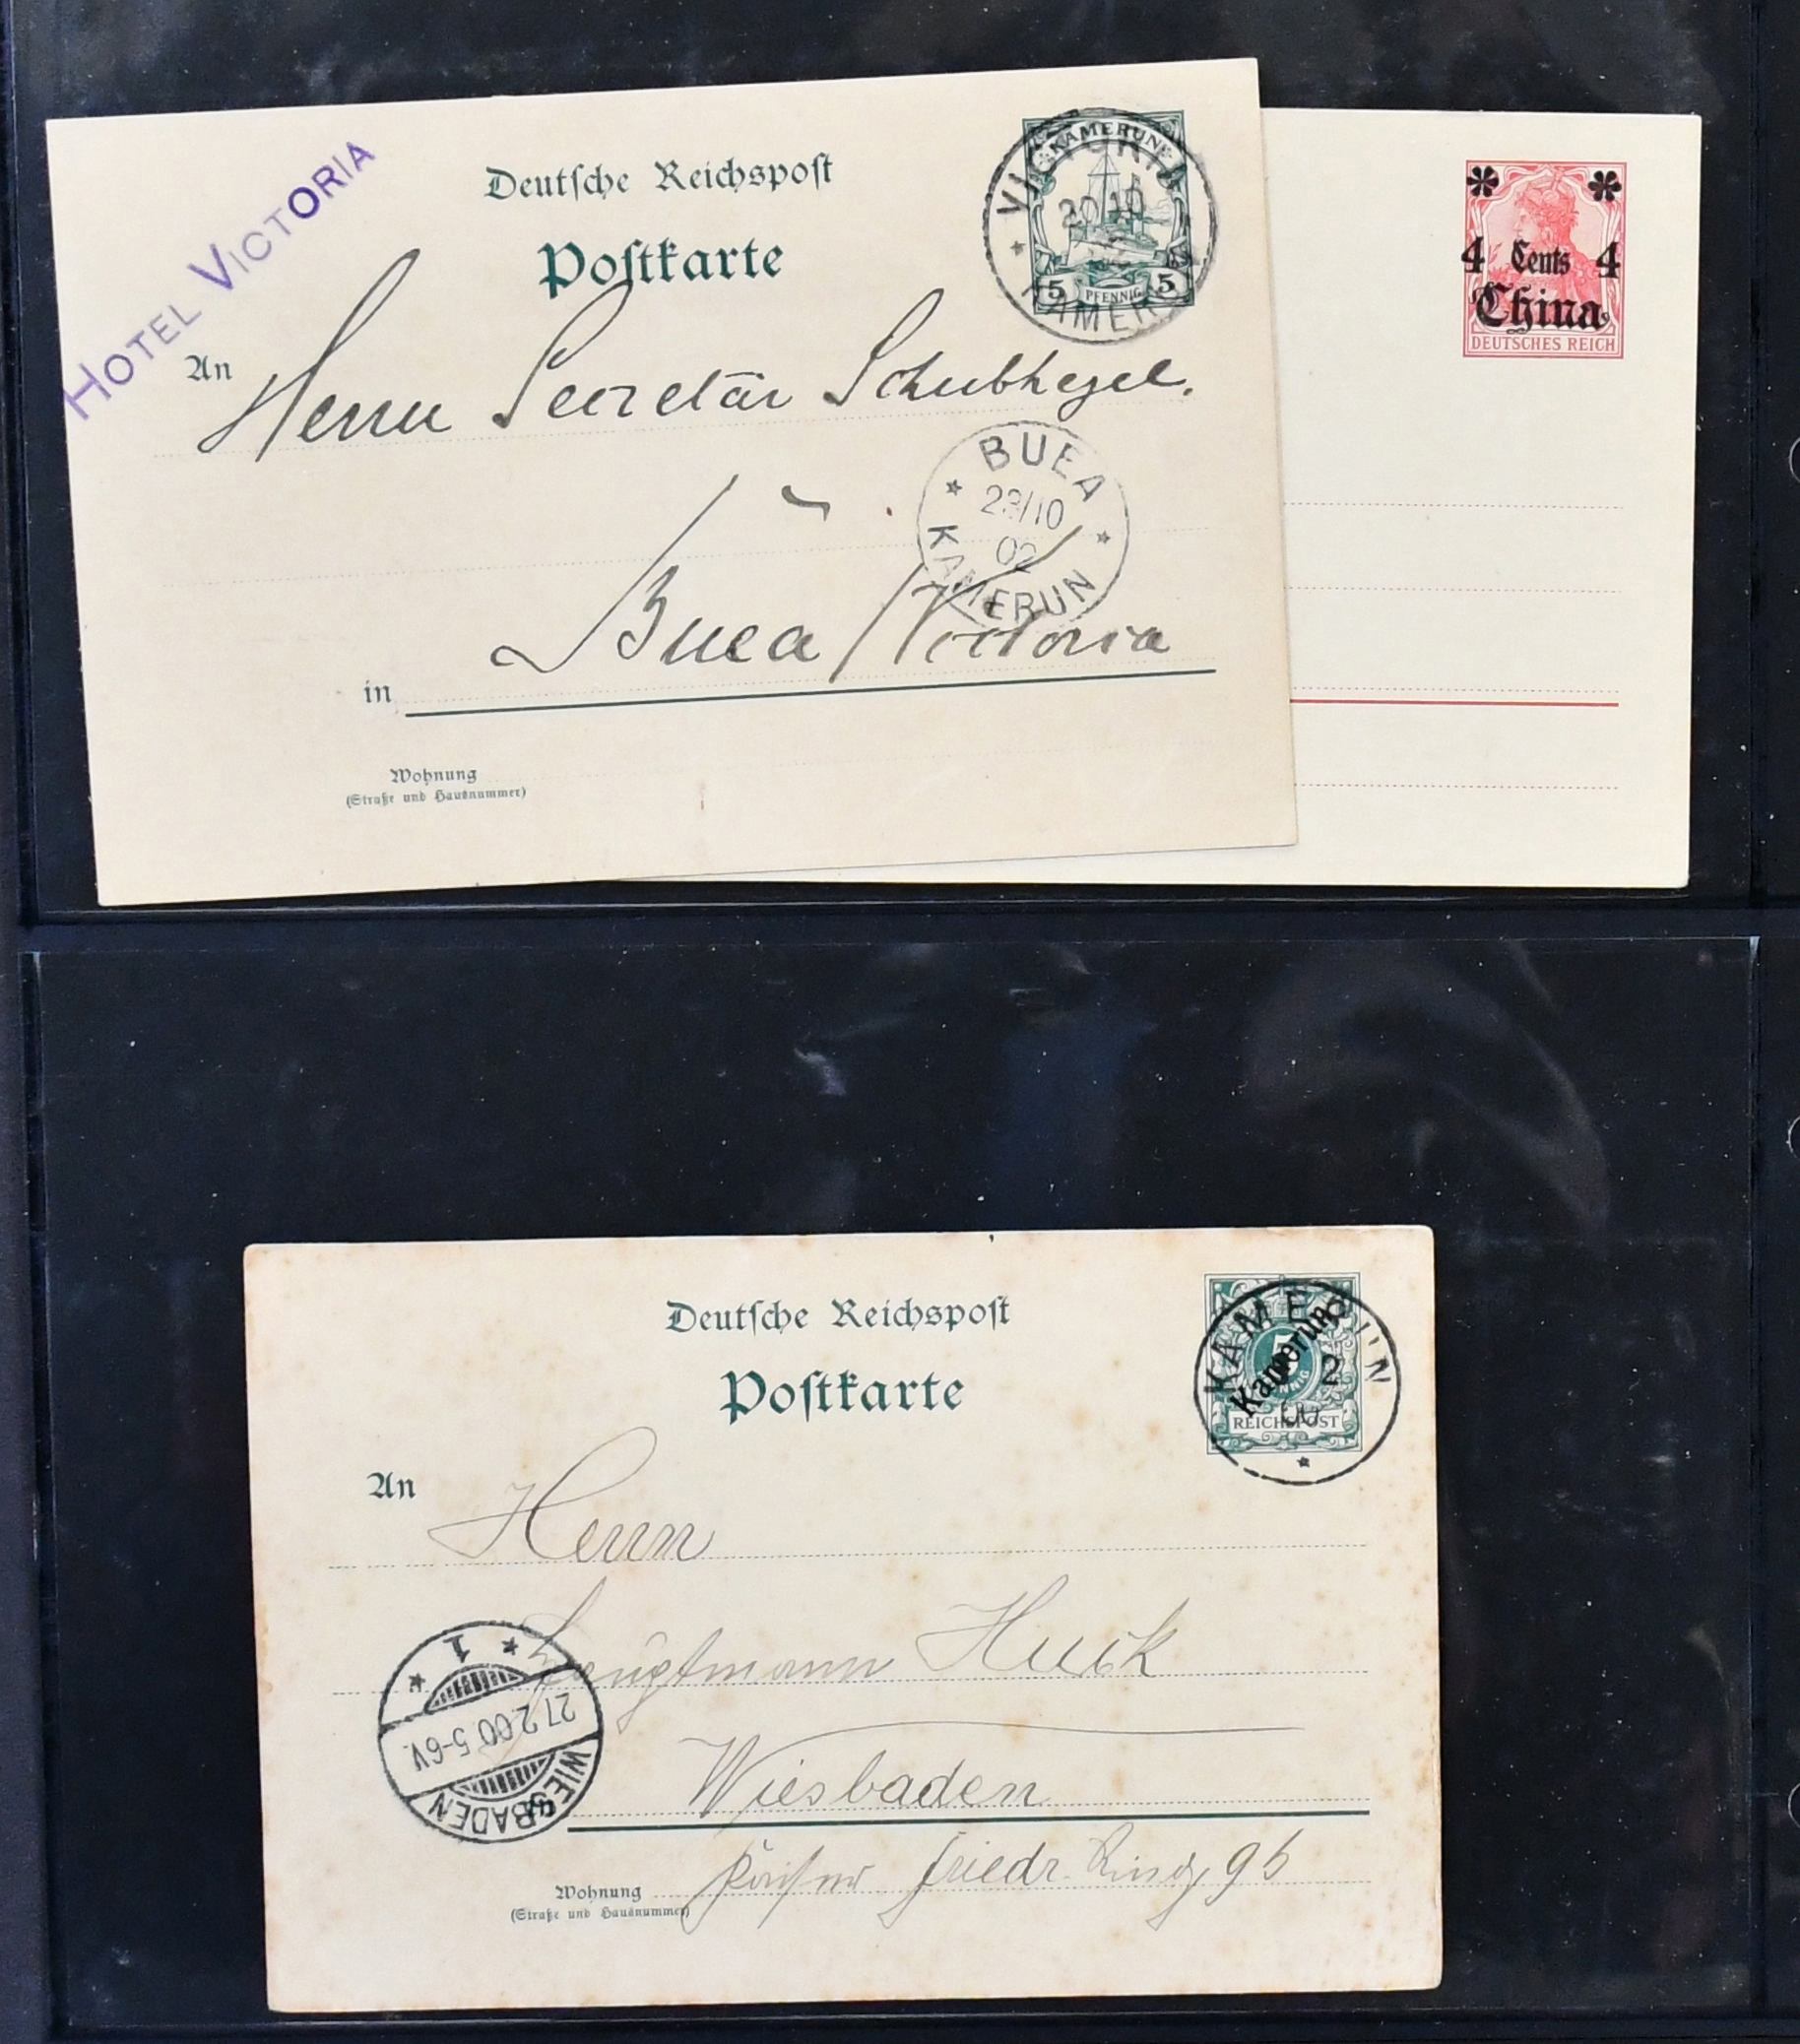 HOTEL VICTORIA
Deutsche Reichspost
Postkarte
KAMERUN
5 PFENNIG 5
VICTORIA
20 10
KAMERUN
An
Herrn Secretär Schubkegel.
BUEA
23/10
02
KAMERUN
Buea / Victoria
in
Wohnung
(Straße und Hausnummer)
4 Cents 4
China
DEUTSCHES REICH
Deutsche Reichspost
Postkarte
KAMERUN
2
Kamerun
5
REICHSPOST
An
Herrn
Hauptmann Huck
Wiesbaden
Kaiser Friedr. Ring 96
Wohnung
(Straße und Hausnummer)
WIESBADEN
27.2.00 5-6V.
* 1 *